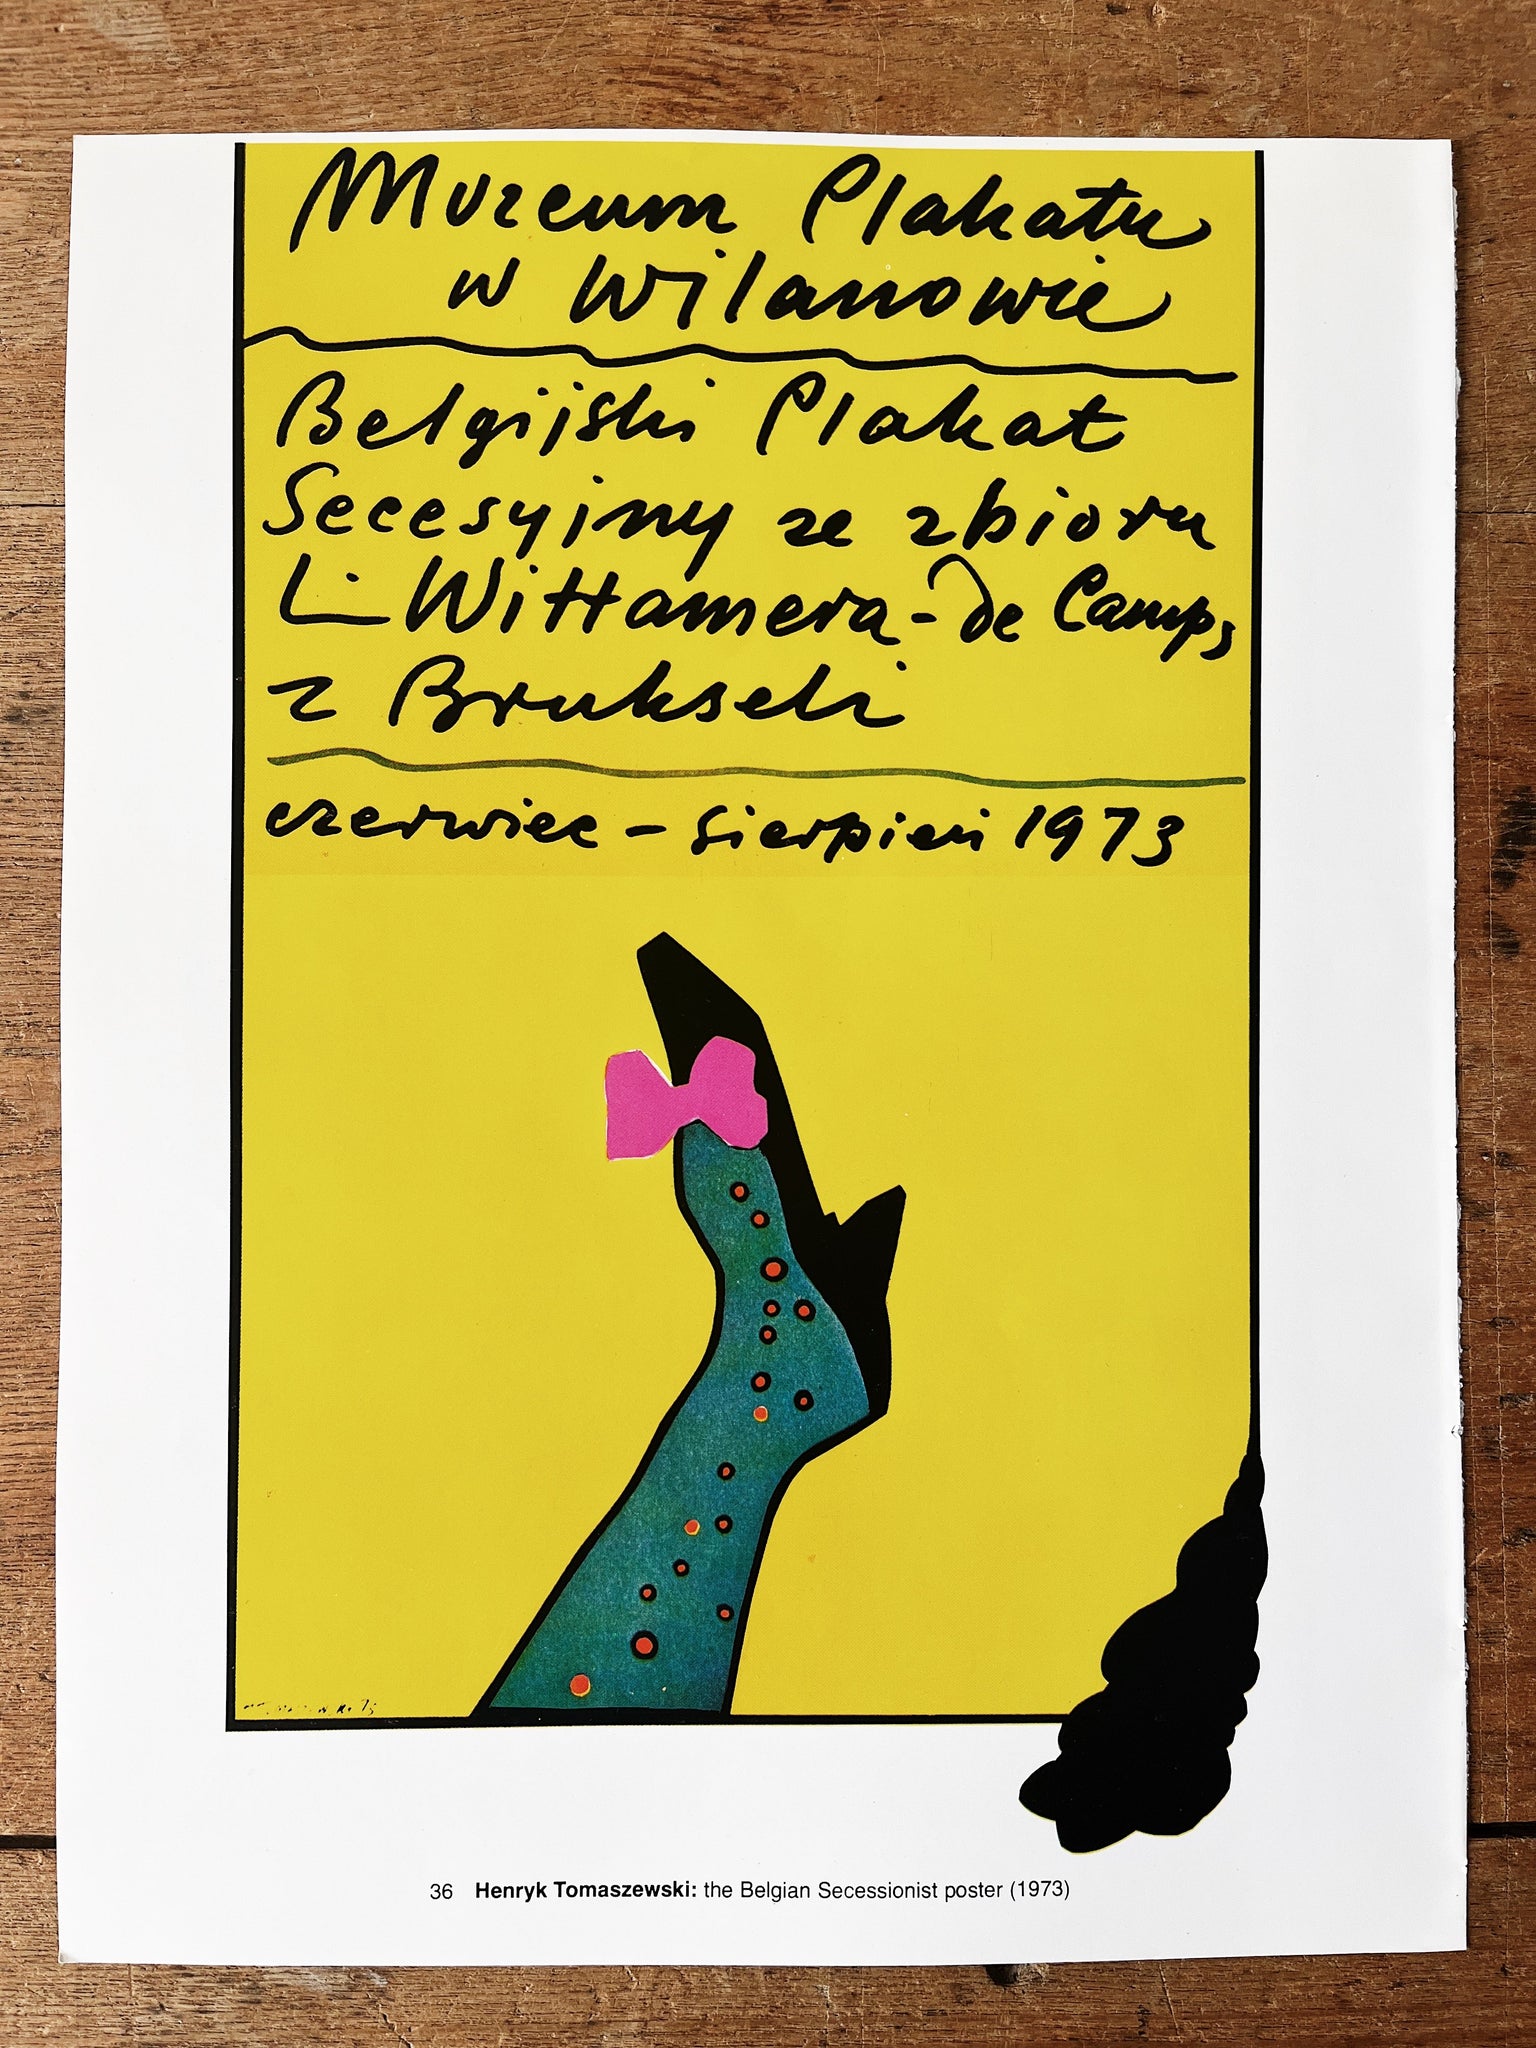 Muzeum Plakatu
w Wilanowie
Belgijski Plakat
Secesyjny ze zbioru
L. Wittamera-de Camps,
z Brukseli
czerwiec – sierpień 1973
36 Henryk Tomaszewski: the Belgian Secessionist poster (1973)